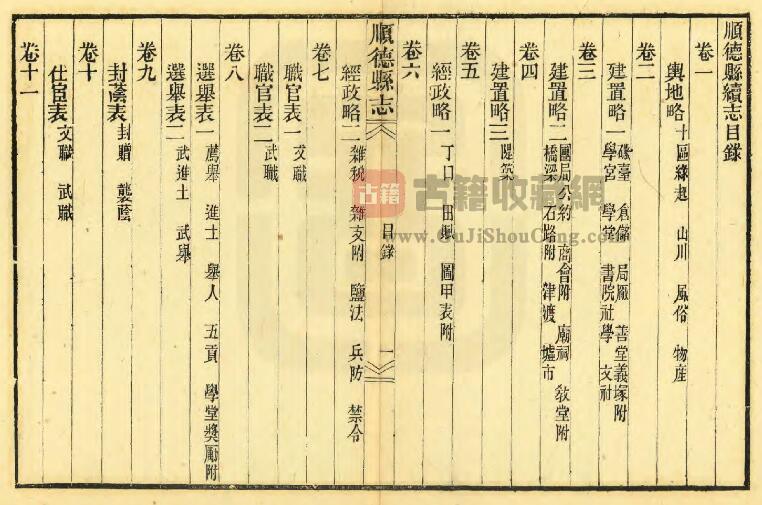 順德縣續志目錄
卷一
輿地略 十區緣起 山川 風俗 物產
卷二
建置略一 礮臺 倉儲 局廠 善堂義塚附
學宮 學堂 書院社學 文社
卷三
建置略二 團局公約 商會附 廟祠 教堂附
橋梁 石路附 津渡 墟市
卷四
建置略三 隄築
卷五
經政略一 丁口 田賦 圖甲表附
卷六
順德縣志
目錄
一
經政略二 雜稅 雜支附 鹽法 兵防 禁令
卷七
職官表一 文職
職官表二 武職
卷八
選舉表一 薦舉 進士 舉人 五貢 學堂獎勵附
選舉表二 武進士 武舉
卷九
封蔭表 封贈 襲蔭
卷十
仕宦表 文職 武職
卷十一
古籍
古籍收藏網
www.GuJiShouCang.com